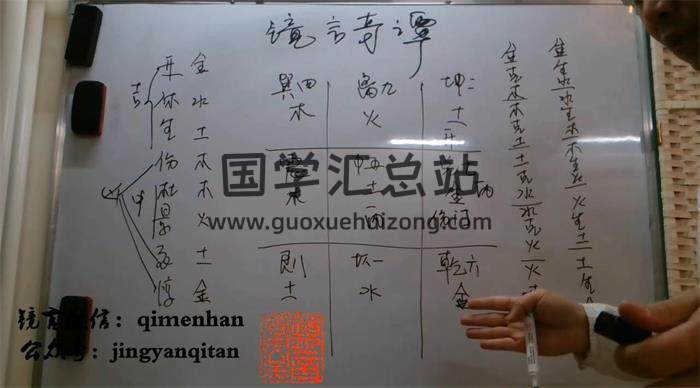 镜言奇谭
吉
开 金
休 水
生 土
伤 木
杜 木
景 火
死 土
惊 金
中
巽四
木
离九
火
坤二
土
开
木
中五
土
艮
土
坎一
水
乾六
金
金克木
木克土
土克水
水克火
火
金生水
水生木
木生火
火生土
土生金
国学汇总站
www.guoxuehuizong.com
镜言微信：qimenhan
公众号：jingyanqitan